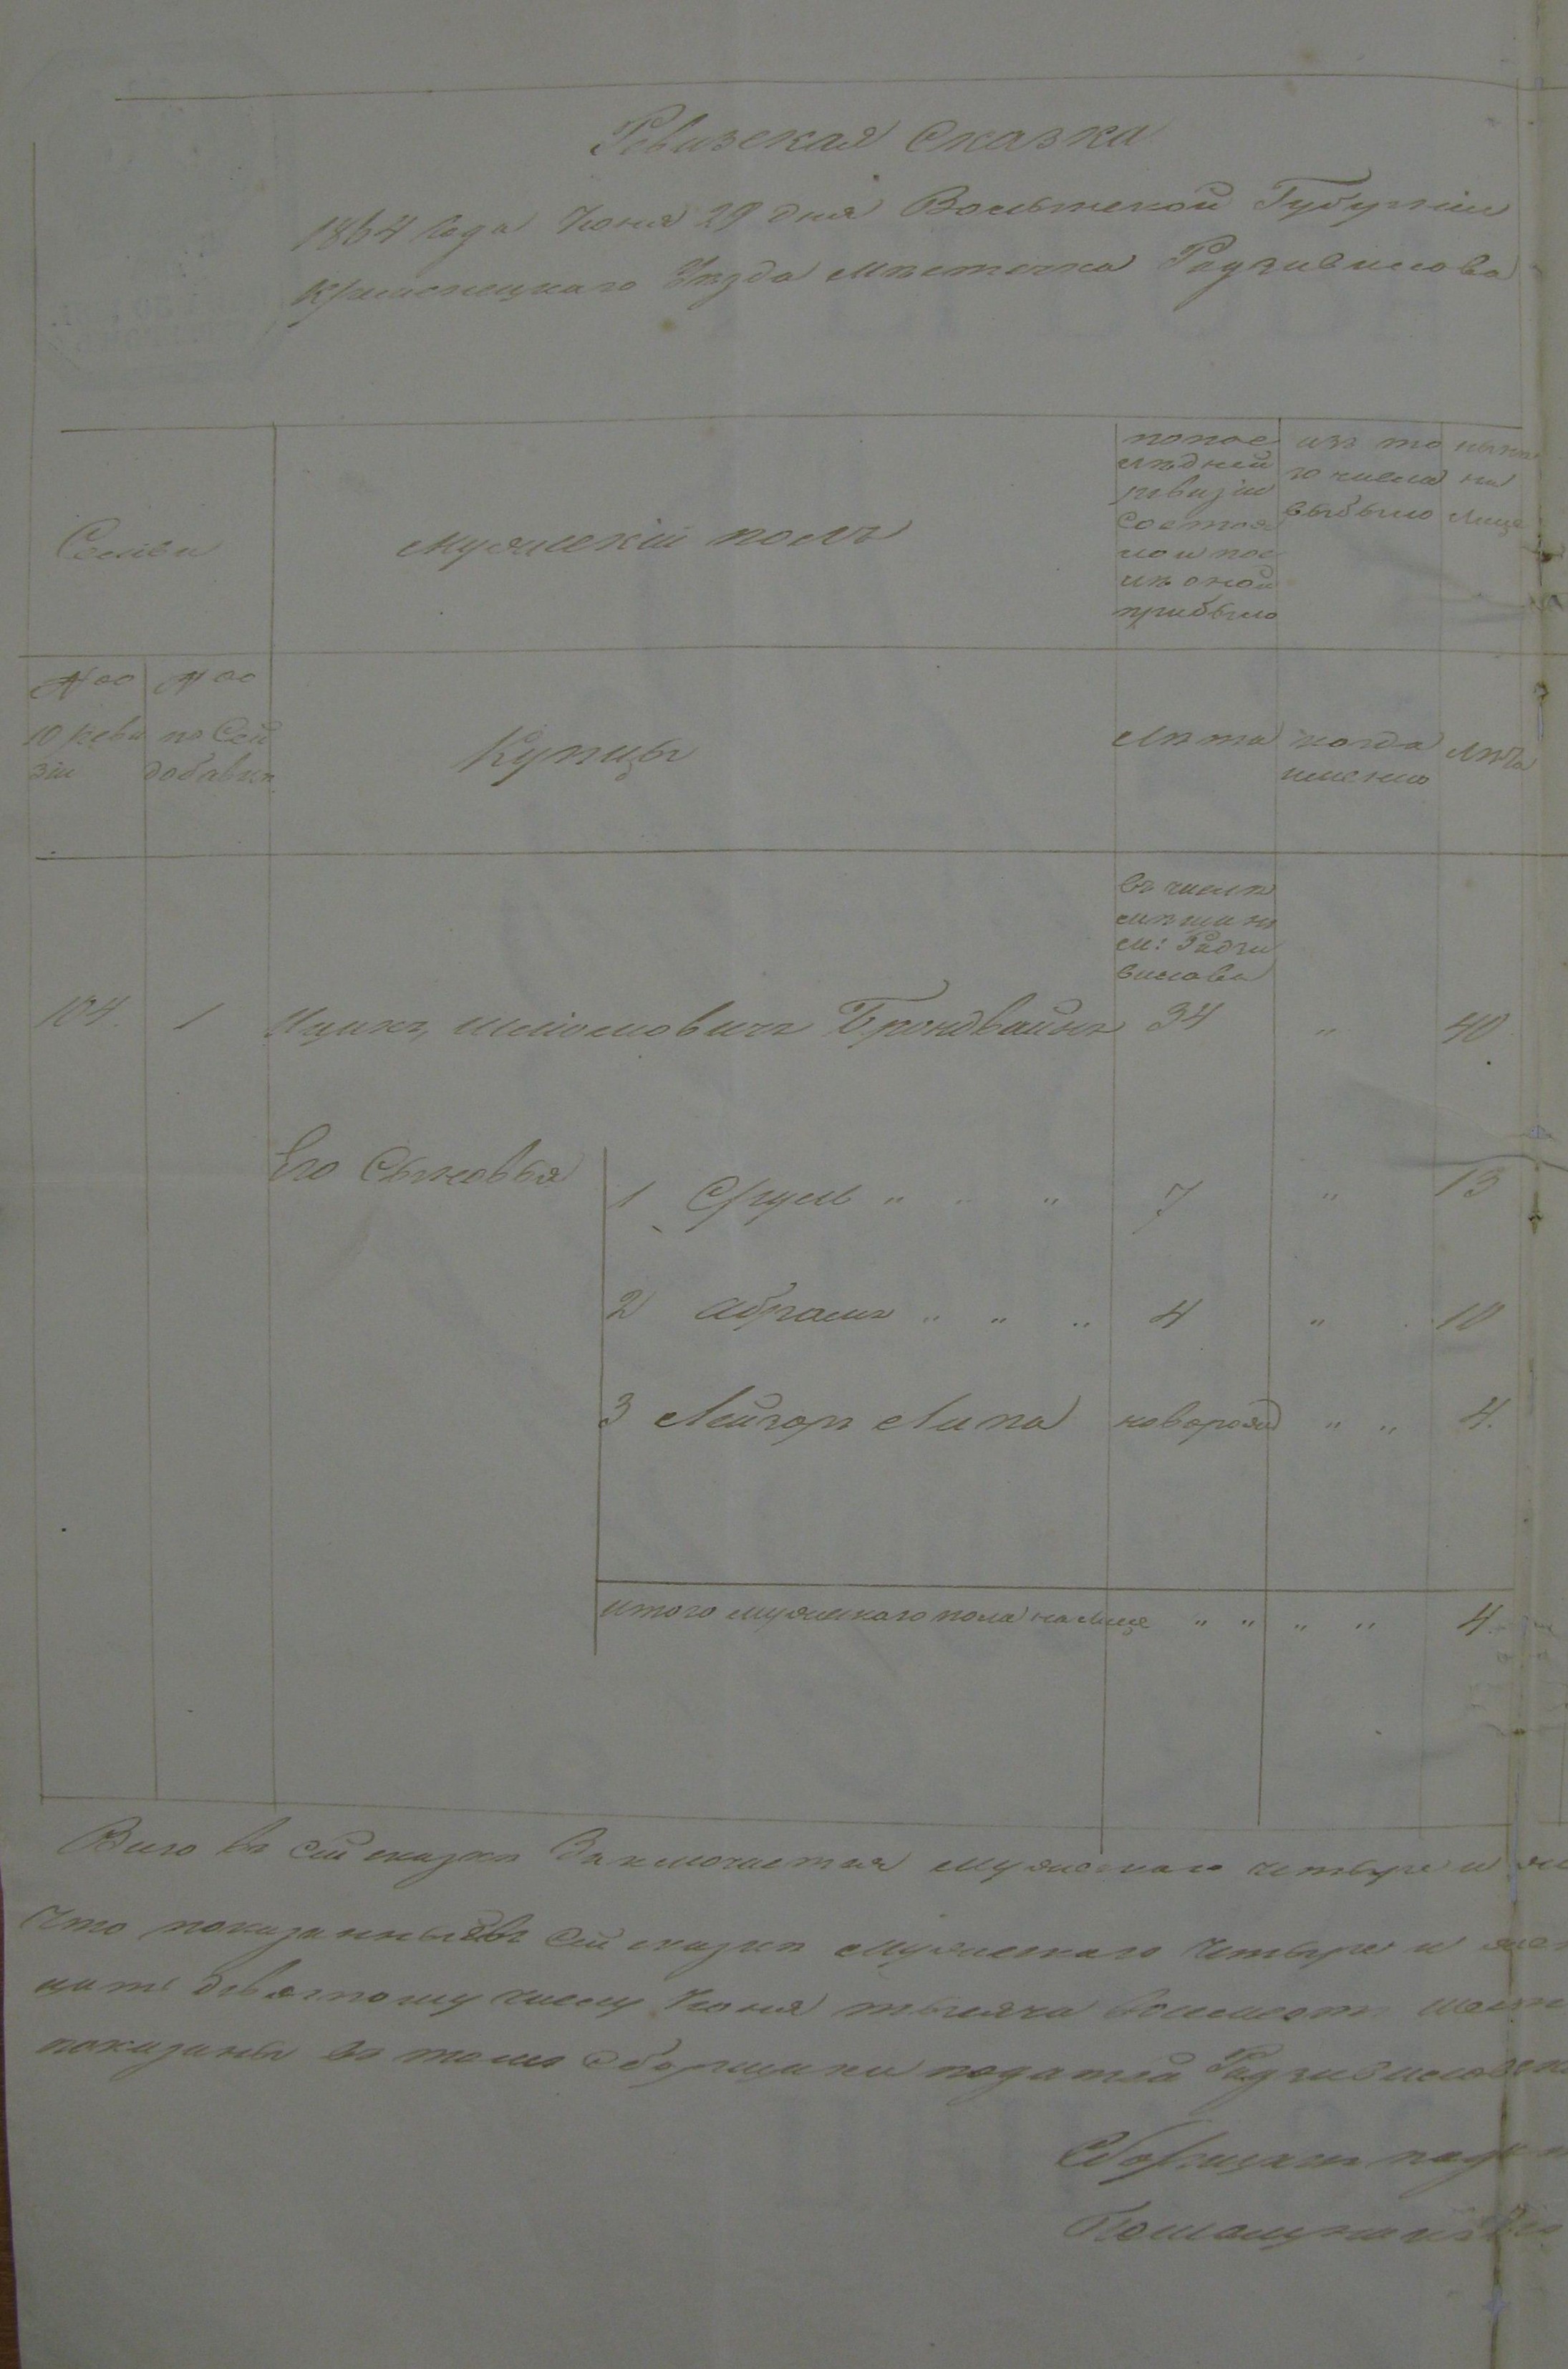 Ревизская Сказка
1864 Года Июня 29 дня Волынской Губерніи
Кременецкаго Уѣзда мѣстечка Радзивилова
Семьи
мужескій полъ
по пос
лѣдней
ревизіи
состоя
ло и пос
лѣ оной
прибыло
изъ то
го числа
выбыло
нынѣ
на
лице
№оо
10 реви
зіи
№оо
по Сей
добавил
Купцы
Лѣта
когда
именно
Лѣта
въ числѣ
мѣщанъ
м: Радзи
вилова
104. 1 Ицикъ Шліомовичъ Брондвайнъ 34 " 40
Его Сыновья
1 Сруль " " " 7 " 13
2 Абрамъ " " " 4 " 10
3 Лейзоръ Липа новорожд " " 4.
итого мужескаго пола на лице " " " " 4.
Всего въ сей сказкѣ Заключается мужескаго четыре и
Что показанные въ сей сказкѣ Мужескаго четыре и
цать девятому числу Июня тысяча восемьсотъ
показаны въ томъ Сборщики податей
Сборщикъ